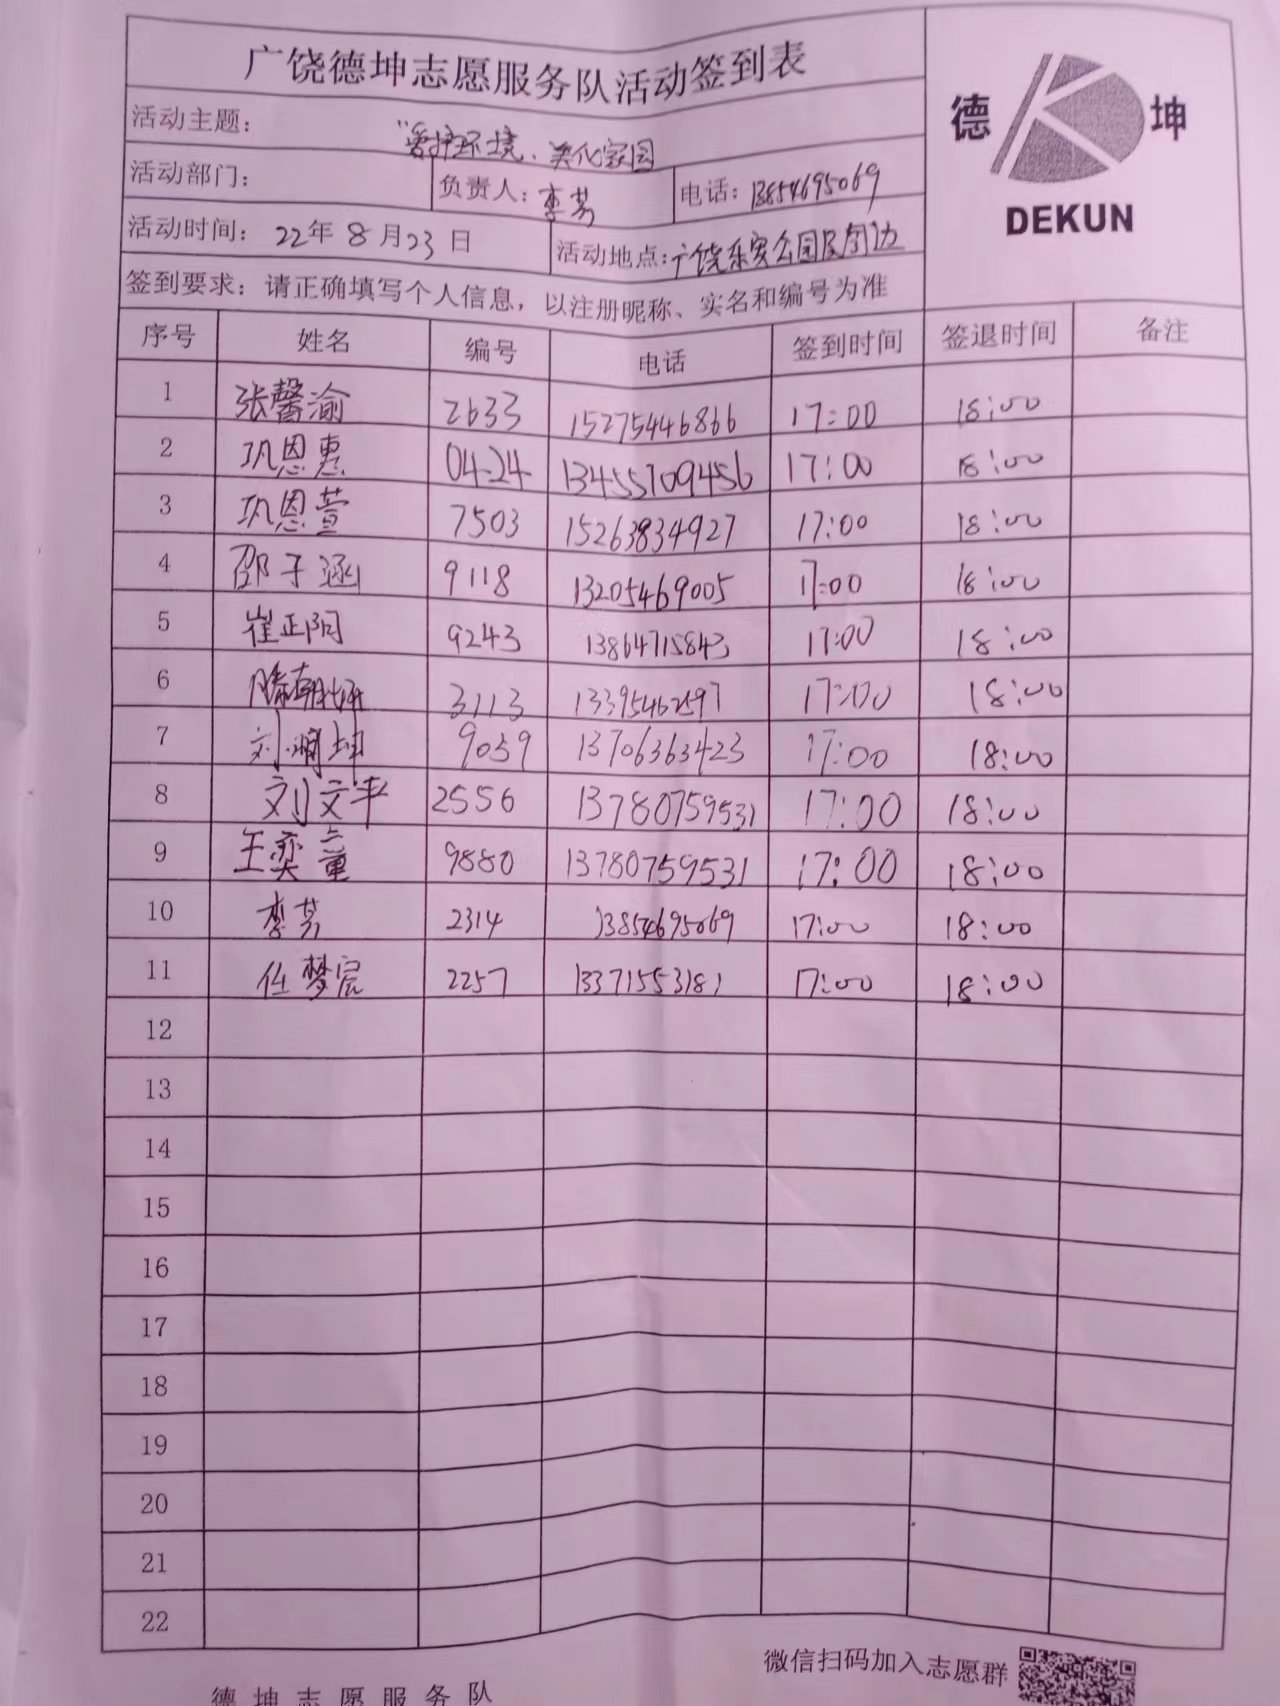 广饶德坤志愿服务队活动签到表
德 坤
DEKUN
活动主题: "爱护环境、美化家园
活动部门: 负责人: 李芳 电话: 13854695069
活动时间: 22年 8 月 23 日 活动地点: 广饶乐安公园及周边
签到要求: 请正确填写个人信息, 以注册昵称、实名和编号为准
序号 姓名 编号 电话 签到时间 签退时间 备注
1 张馨渝 2633 15275446866 17:00 18:00
2 巩恩惠 0424 13455709456 17:00 18:00
3 巩恩萱 7503 15263834927 17:00 18:00
4 邵子涵 9118 13205469005 17:00 18:00
5 崔正阳 9243 13864715843 17:00 18:00
6 3113 13395462597 17:00 18:00
7 刘 坤 9059 13706363423 17:00 18:00
8 刘文 2556 13780759531 17:00 18:00
9 王奕童 9880 13780759531 17:00 18:00
10 李芳 2314 13854695069 17:00 18:00
11 任梦宸 2257 13371553181 17:00 18:00
12
13
14
15
16
17
18
19
20
21
22
微信扫码加入志愿群
德坤志愿服务队